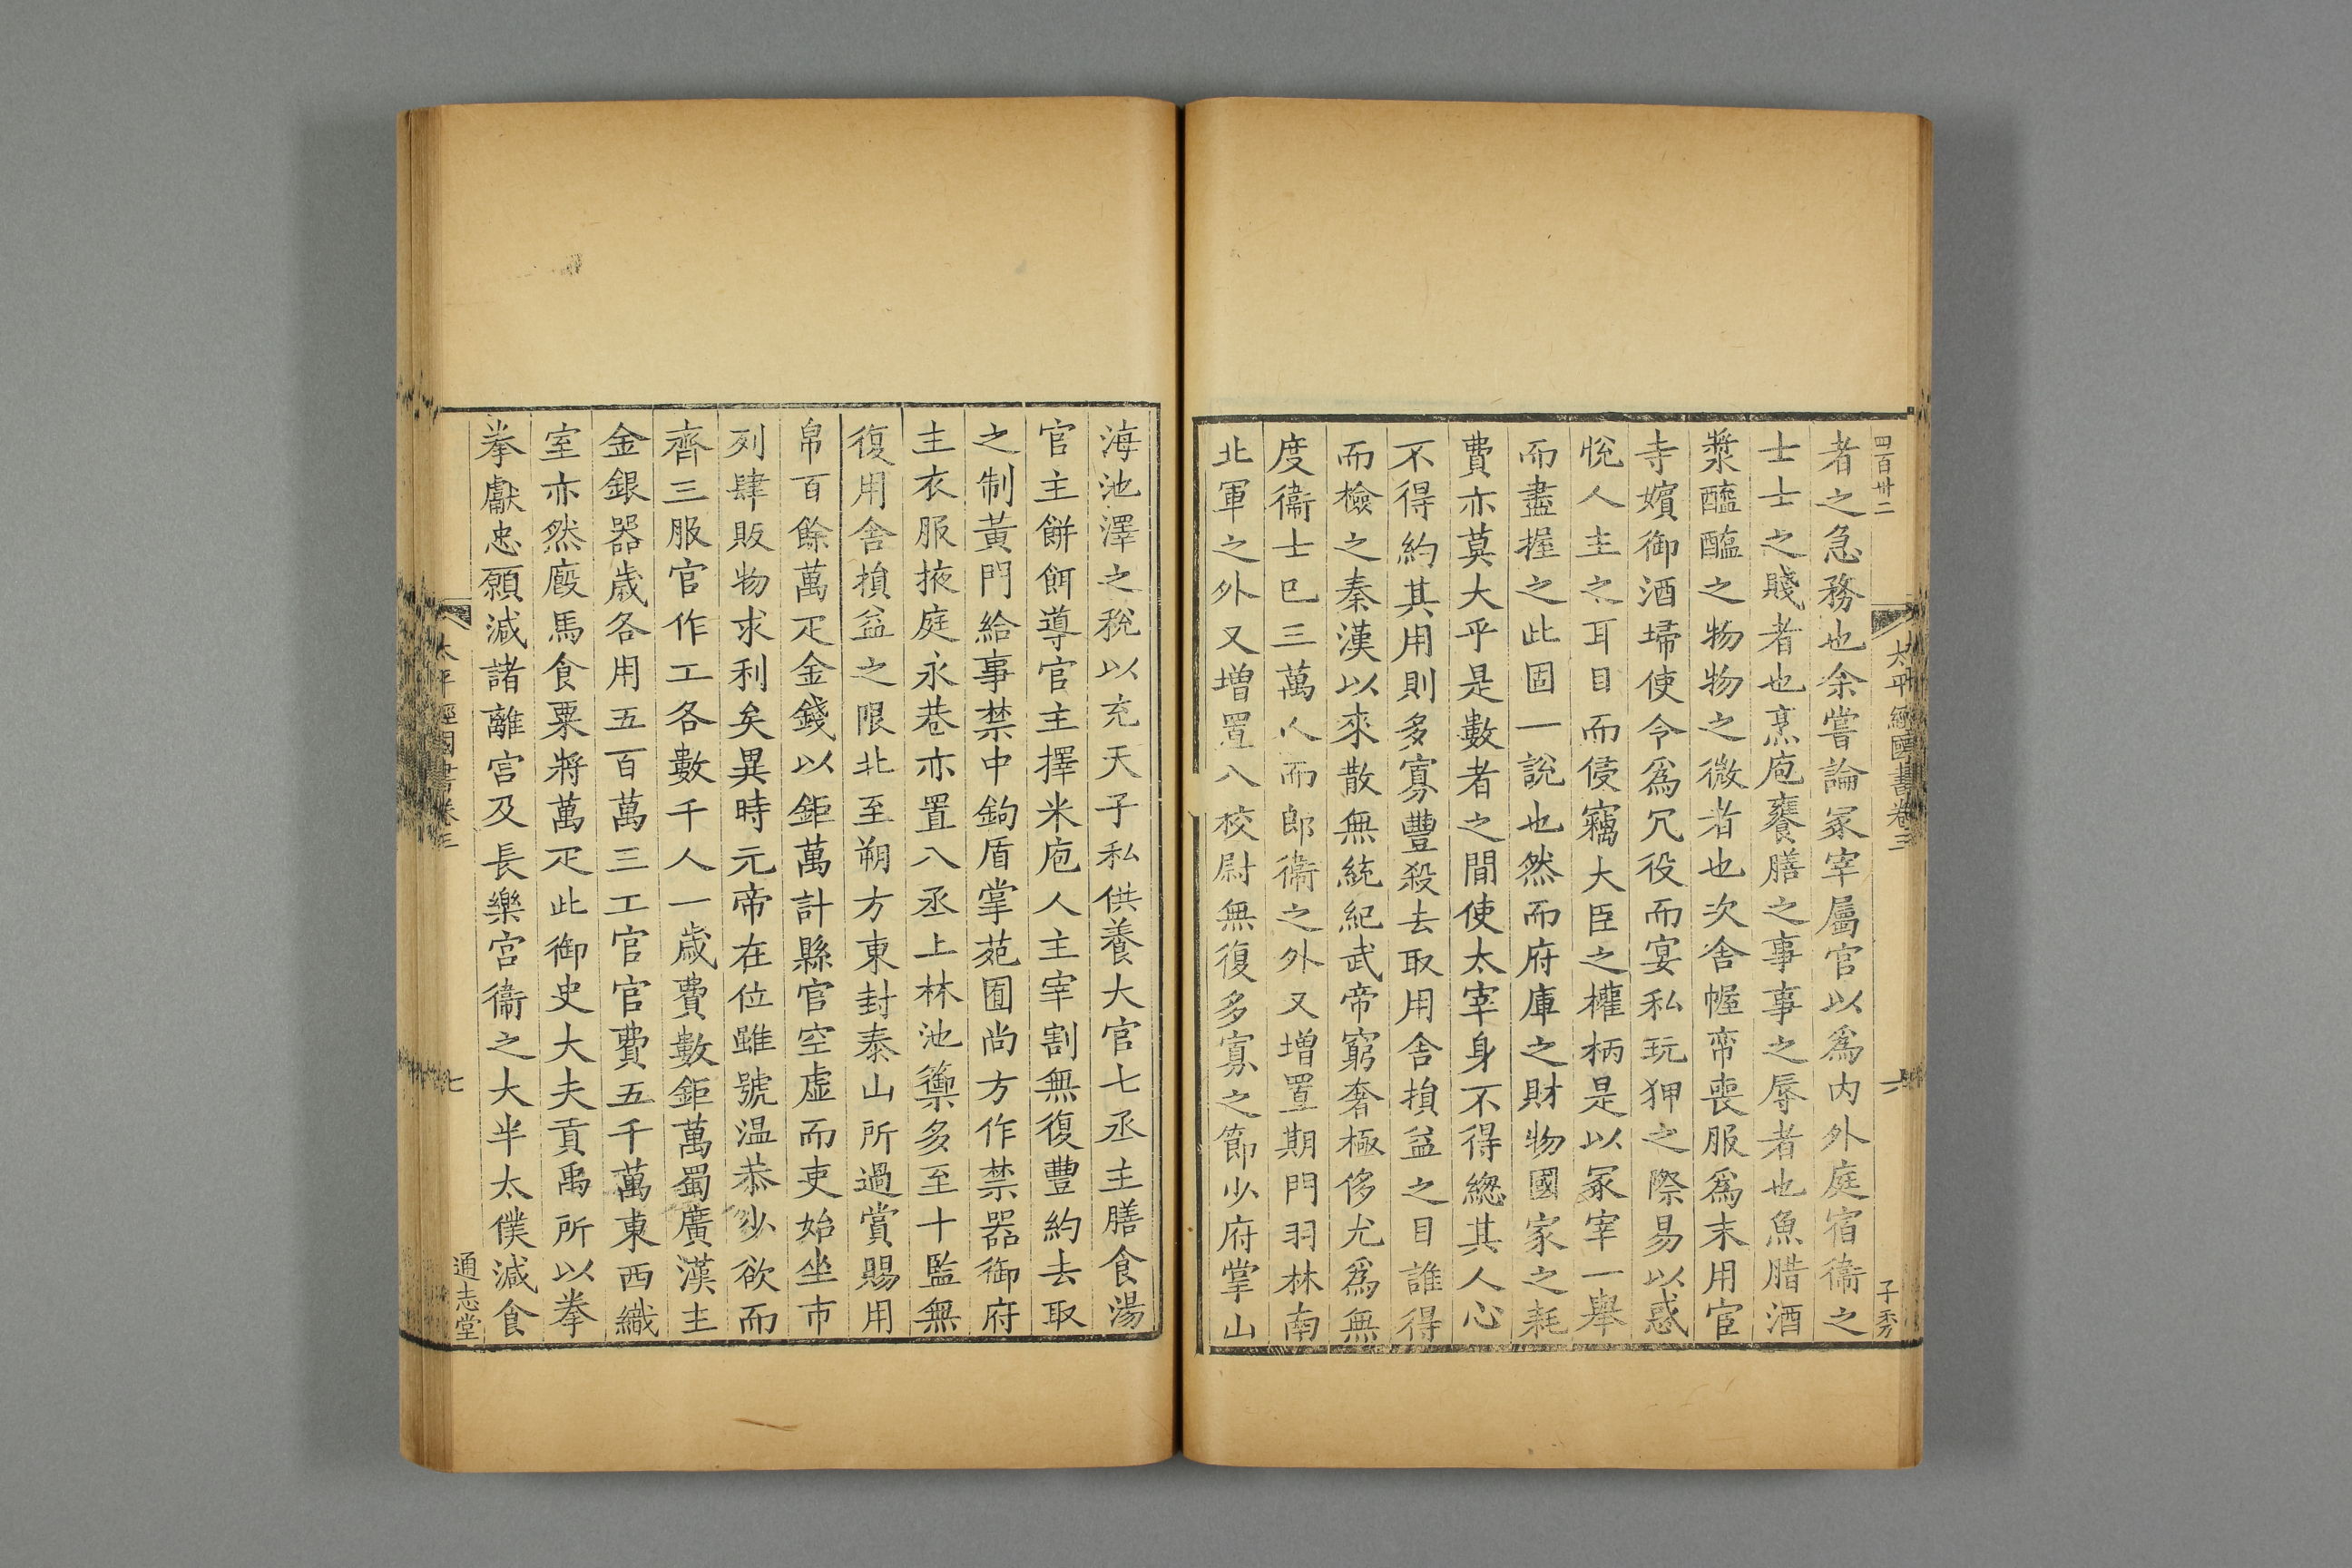 四百卅二
太平經國書卷三
六
子秀
者之急務也余嘗論冢宰屬官以爲内外庭宿衞之
士士之賤者也烹庖饔膳之事事之辱者也魚腊酒
漿醯醢之物物之微者也次舍幄帟喪服爲末用宦
寺嬪御酒埽使令爲冗役而宴私玩狎之際易以惑
悅人主之耳目而侵竊大臣之權柄是以冢宰一舉
而盡握之此固一說也然而府庫之財物國家之耗
費亦莫大乎是數者之間使太宰身不得緫其人心
不得約其用則多寡豐殺去取用舍損益之目誰得
而檢之秦漢以來散無統紀武帝窮奢極侈尤爲無
度衞士巳三萬人而郎衞之外又增置期門羽林南
北軍之外又增置八校尉無復多寡之節少府掌山
海池澤之稅以充天子私供養大官七丞主膳食湯
官主餅餌導官主擇米庖人主宰割無復豐約去取
之制黃門給事禁中鉤盾掌苑囿尚方作禁器御府
主衣服掖庭永巷亦置八丞上林池籞多至十監無
復用舍損益之限北至朔方東封泰山所過賞賜用
帛百餘萬疋金錢以鉅萬計縣官空虛而吏始坐市
列肆販物求利矣異時元帝在位雖號温恭少欲而
齊三服官作工各數千人一歲費數鉅萬蜀廣漢主
金銀器歲各用五百萬三工官官費五千萬東西織
室亦然廏馬食粟將萬疋此御史大夫貢禹所以拳
拳獻忠願減諸離宮及長樂宮衞之大半太僕減食
太平經國書卷三
七
通志堂